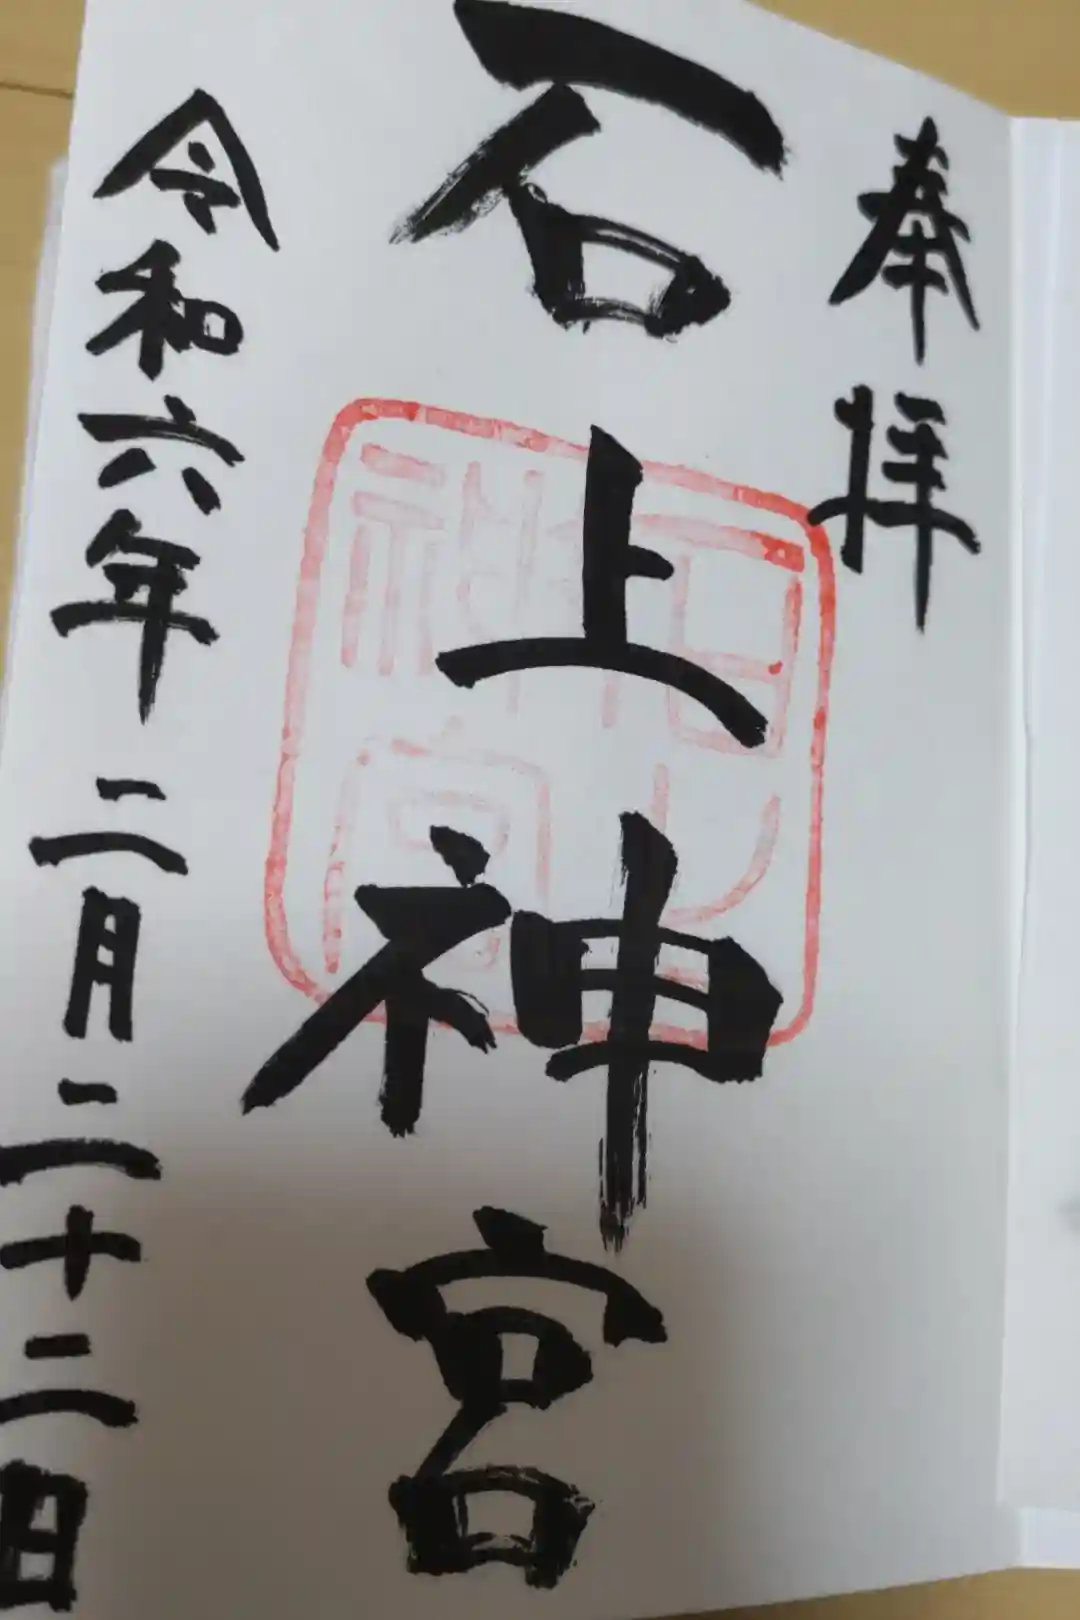 奉拝
石上神宮
石上神宮
令和六年二月二十二日